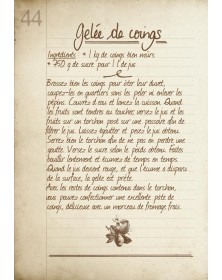 44
Gelée de coings
Ingrédients : * 1 kg de coings bien mûrs
* 750 g de sucre pour 1 l de jus
Brossez bien les coings pour ôter leur duvet,
coupez-les en quartiers sans les peler ni enlever les
pépins. L'aurez d'eau et lancez la cuisson. Quand
les fruits sont tendres au toucher, versez le jus et les
fruits sur un torchon posé sur une passoire afin de
filtrer le jus. Laissez égoutter et pesez le jus obtenu.
Serrez bien le torchon afin de ne pas en perdre une
goutte. Versez le sucre selon le poids obtenu. Faites
bouillir lentement et écumez de temps en temps.
Quand le jus devient rouge, et que l'écume a disparu
de la surface, la gelée est prête.
Avec les restes de coings contenus dans le torchon,
vous pouvez confectionner une excellente pâte de
coings, délicieuse avec un morceau de fromage frais.